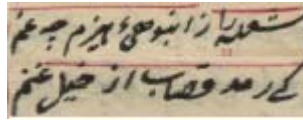 شعله را ز انبوهیٔ هیزم چه غم
کی رمد قصاب از خیل غنم